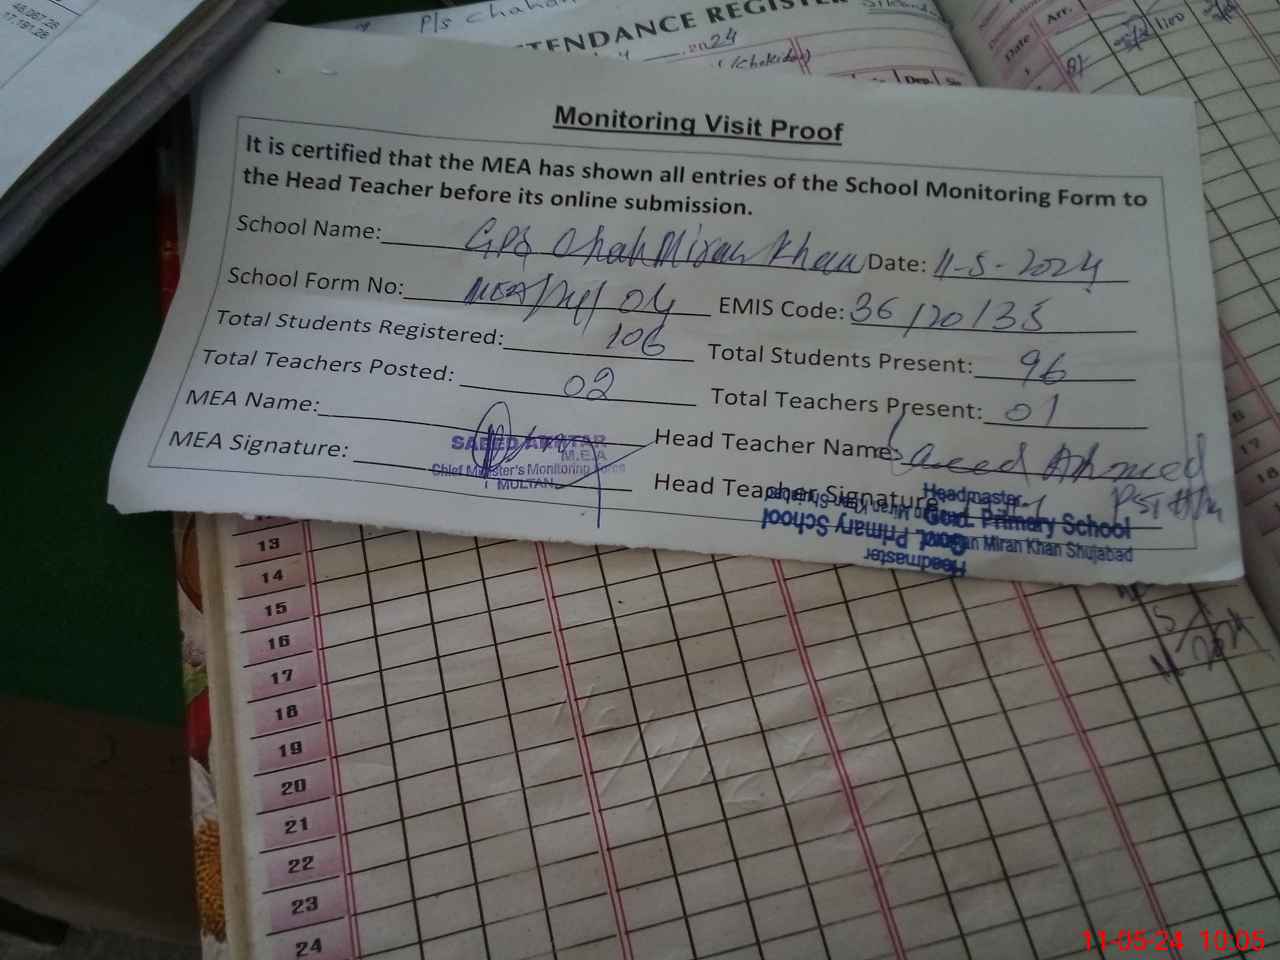 48,067.28
17,191.28
P/s chahan
TENDANCE REGISTER
2024
(Chokidar)
Dep.
Arr.
Date
Monitoring Visit Proof
It is certified that the MEA has shown all entries of the School Monitoring Form to
the Head Teacher before its online submission.
School Name: GPS Chah Miran Khan Date: 11-5-2024
School Form No: MEA/ 04 EMIS Code: 36120135
Total Students Registered: 106 Total Students Present: 96
Total Teachers Posted: 02 Total Teachers Present: 01
MEA Name: Head Teacher Name: Saeed Ahmed
MEA Signature: Head Teacher Signature
PST
SAEED AKHTAR
M.E.A
Chief Minister's Monitoring Force
MULTAN
Headmaster
Govt. Primary School
Miran Khan Shujabad
Headmaster
Govt. Primary School
Miran Khan Shujabad
13
14
15
16
17
18
19
20
21
22
23
24
17
18
11-05-24 10:05